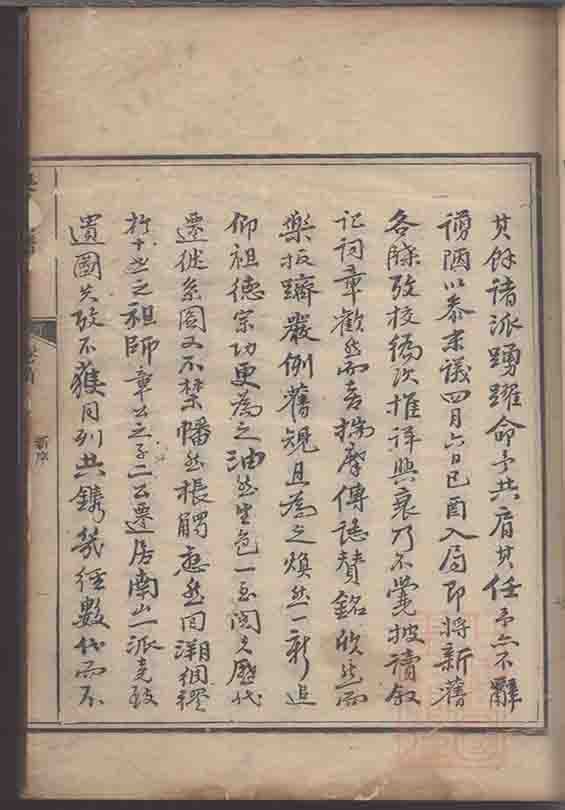 其餘諸派踴躍命予共肩其任予亦不辭
謭陋以忝末議四月六日己酉入局即將新舊
各牒攷校編次推詳興衰乃不覺披讀叙
記詞章歡然而喜揣摩傳誌贊銘欣然而
樂於躋嚴例舊規且為之煥然一新追
仰祖德宗功更為之油然生色一至閱夫歷代
遷徙系圖又不禁幡然棖觸悲然回溯細繹
於十世之祖師章公之子二公遷居南山一派竟致
遺圖失攷不獲同列共鐫幾經數代而不
新序